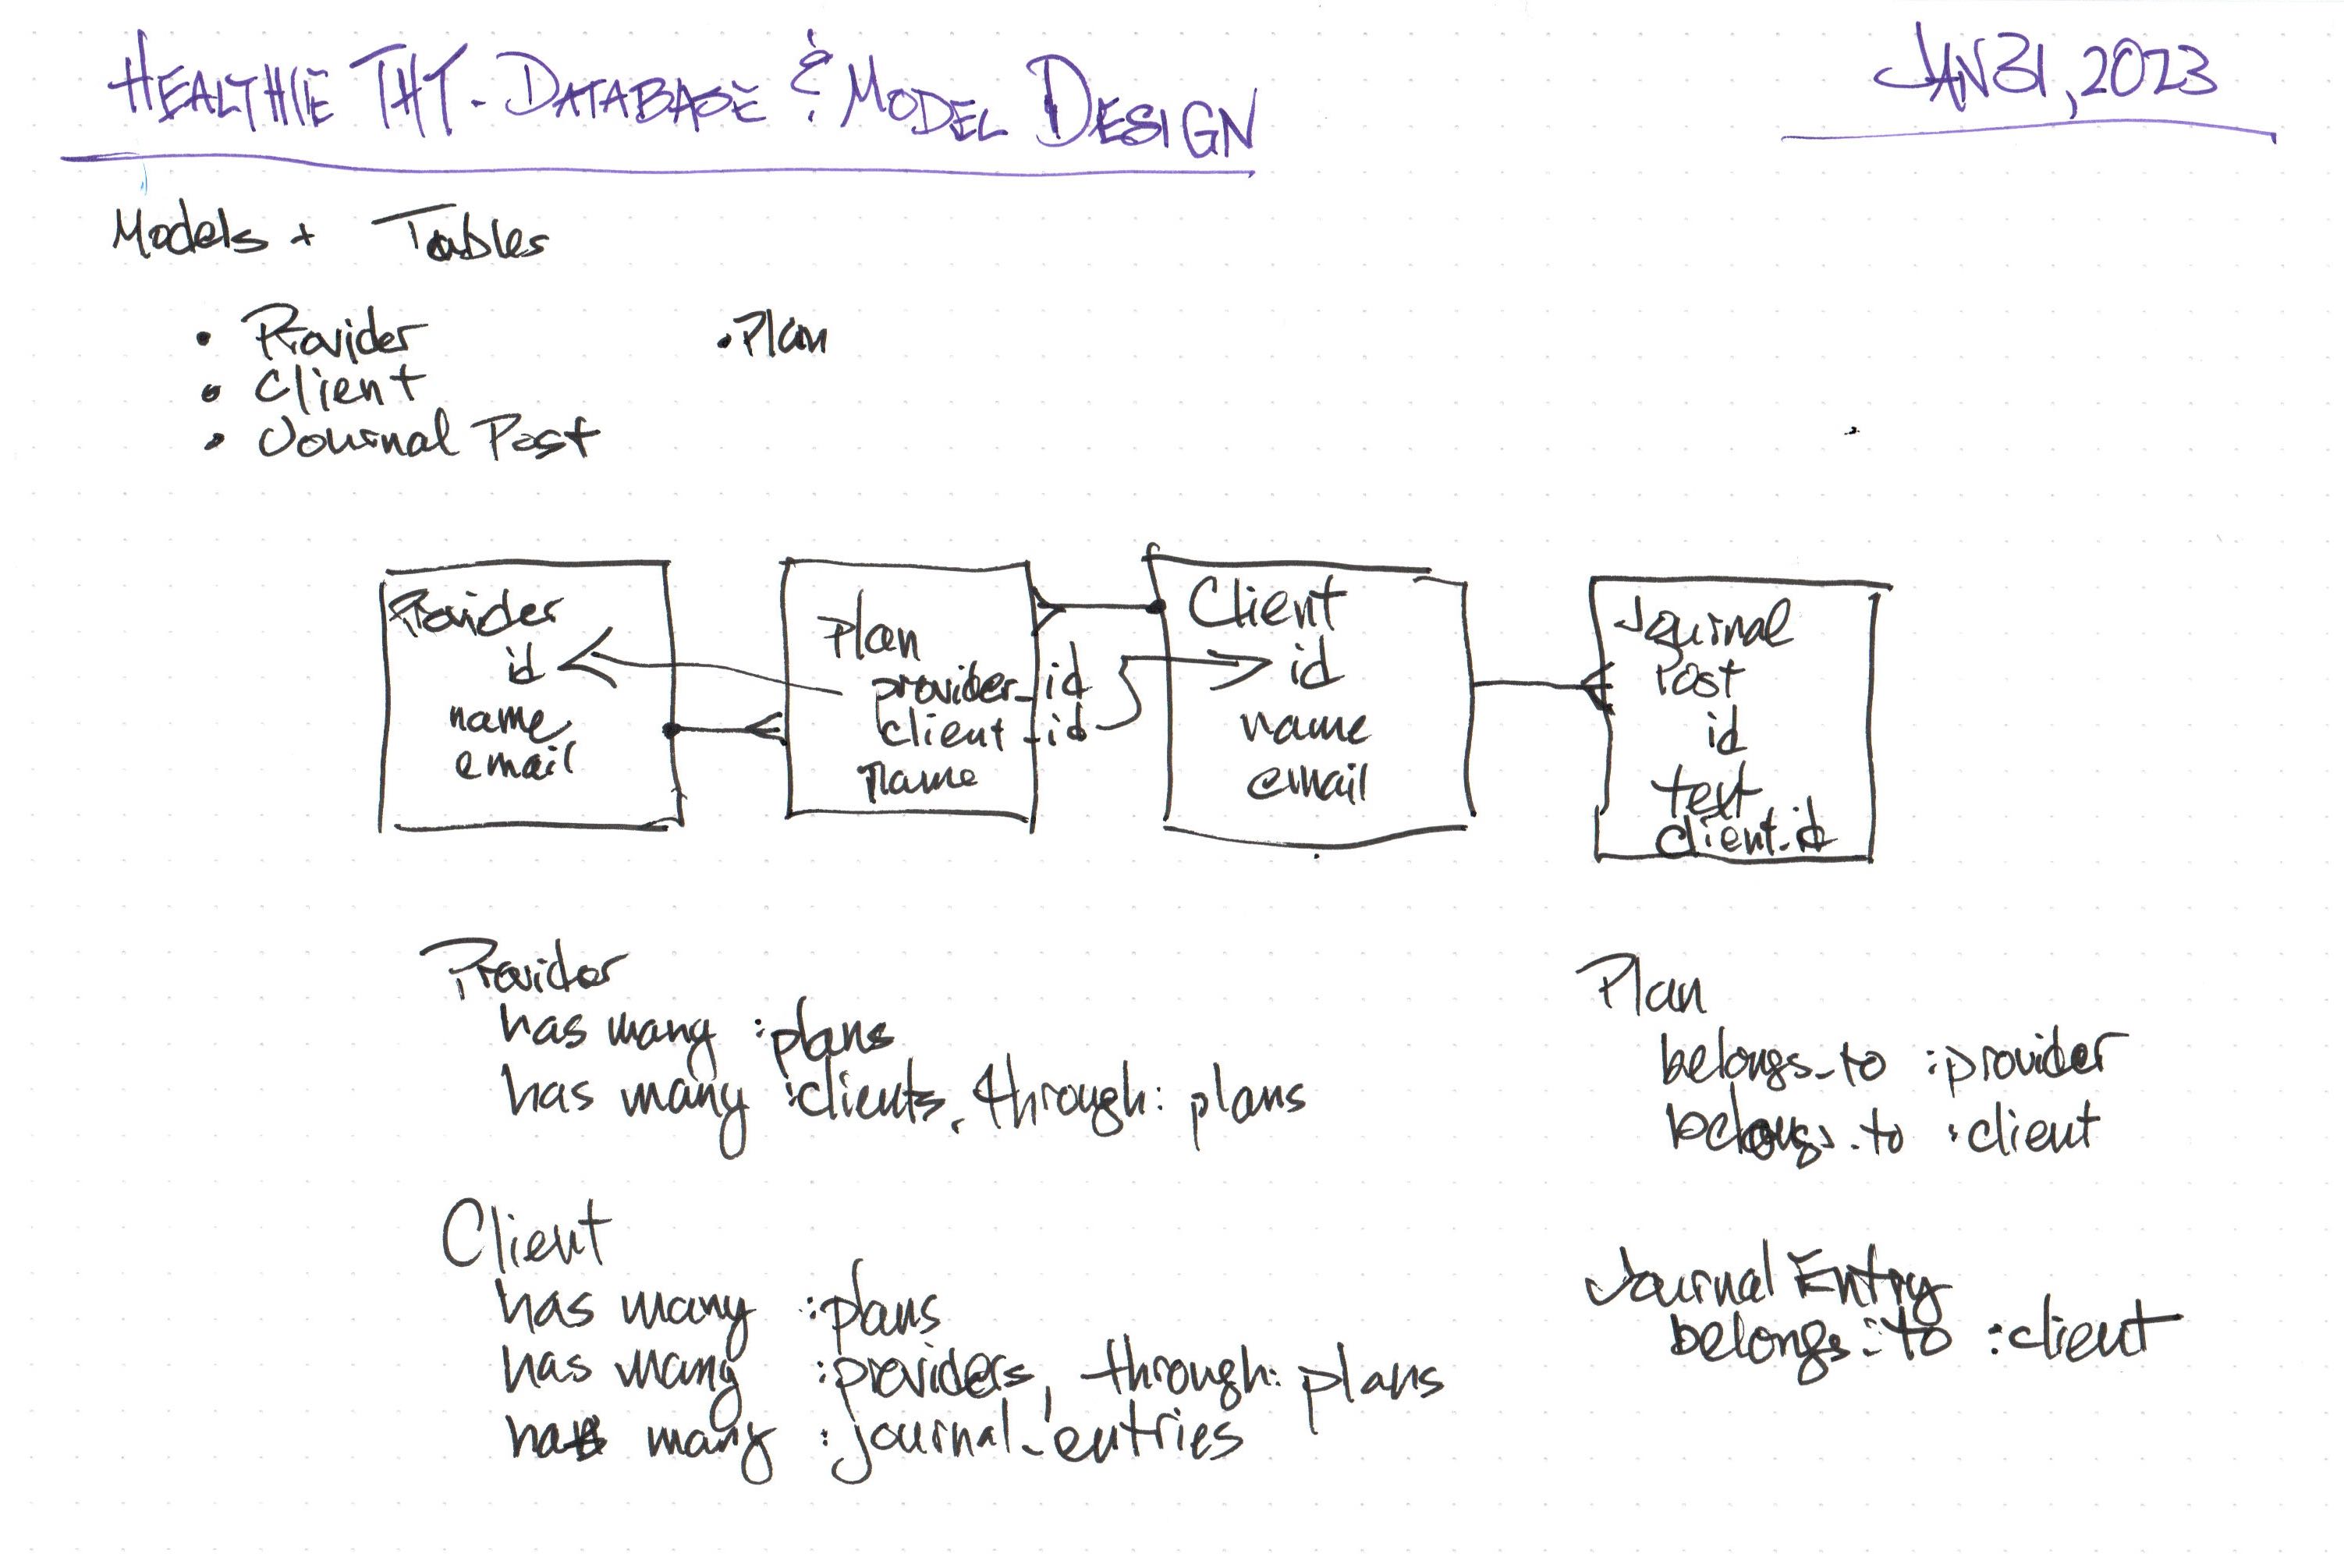 HEALTHIE THT - DATABASE & MODEL DESIGN
JAN 31, 2023
Models + Tables
• Provider
• Client
• Journal Post
• Plan
Provider
id
name
email
Plan
provider_id
client_id
name
Client
id
name
email
Journal
Post
id
text
client_id
Provider
has many :plans
has many :clients, through: plans
Client
has many :plans
has many :providers, through: plans
has many :journal_entries
Plan
belongs_to :provider
belongs_to :client
Journal Entry
belongs_to :client